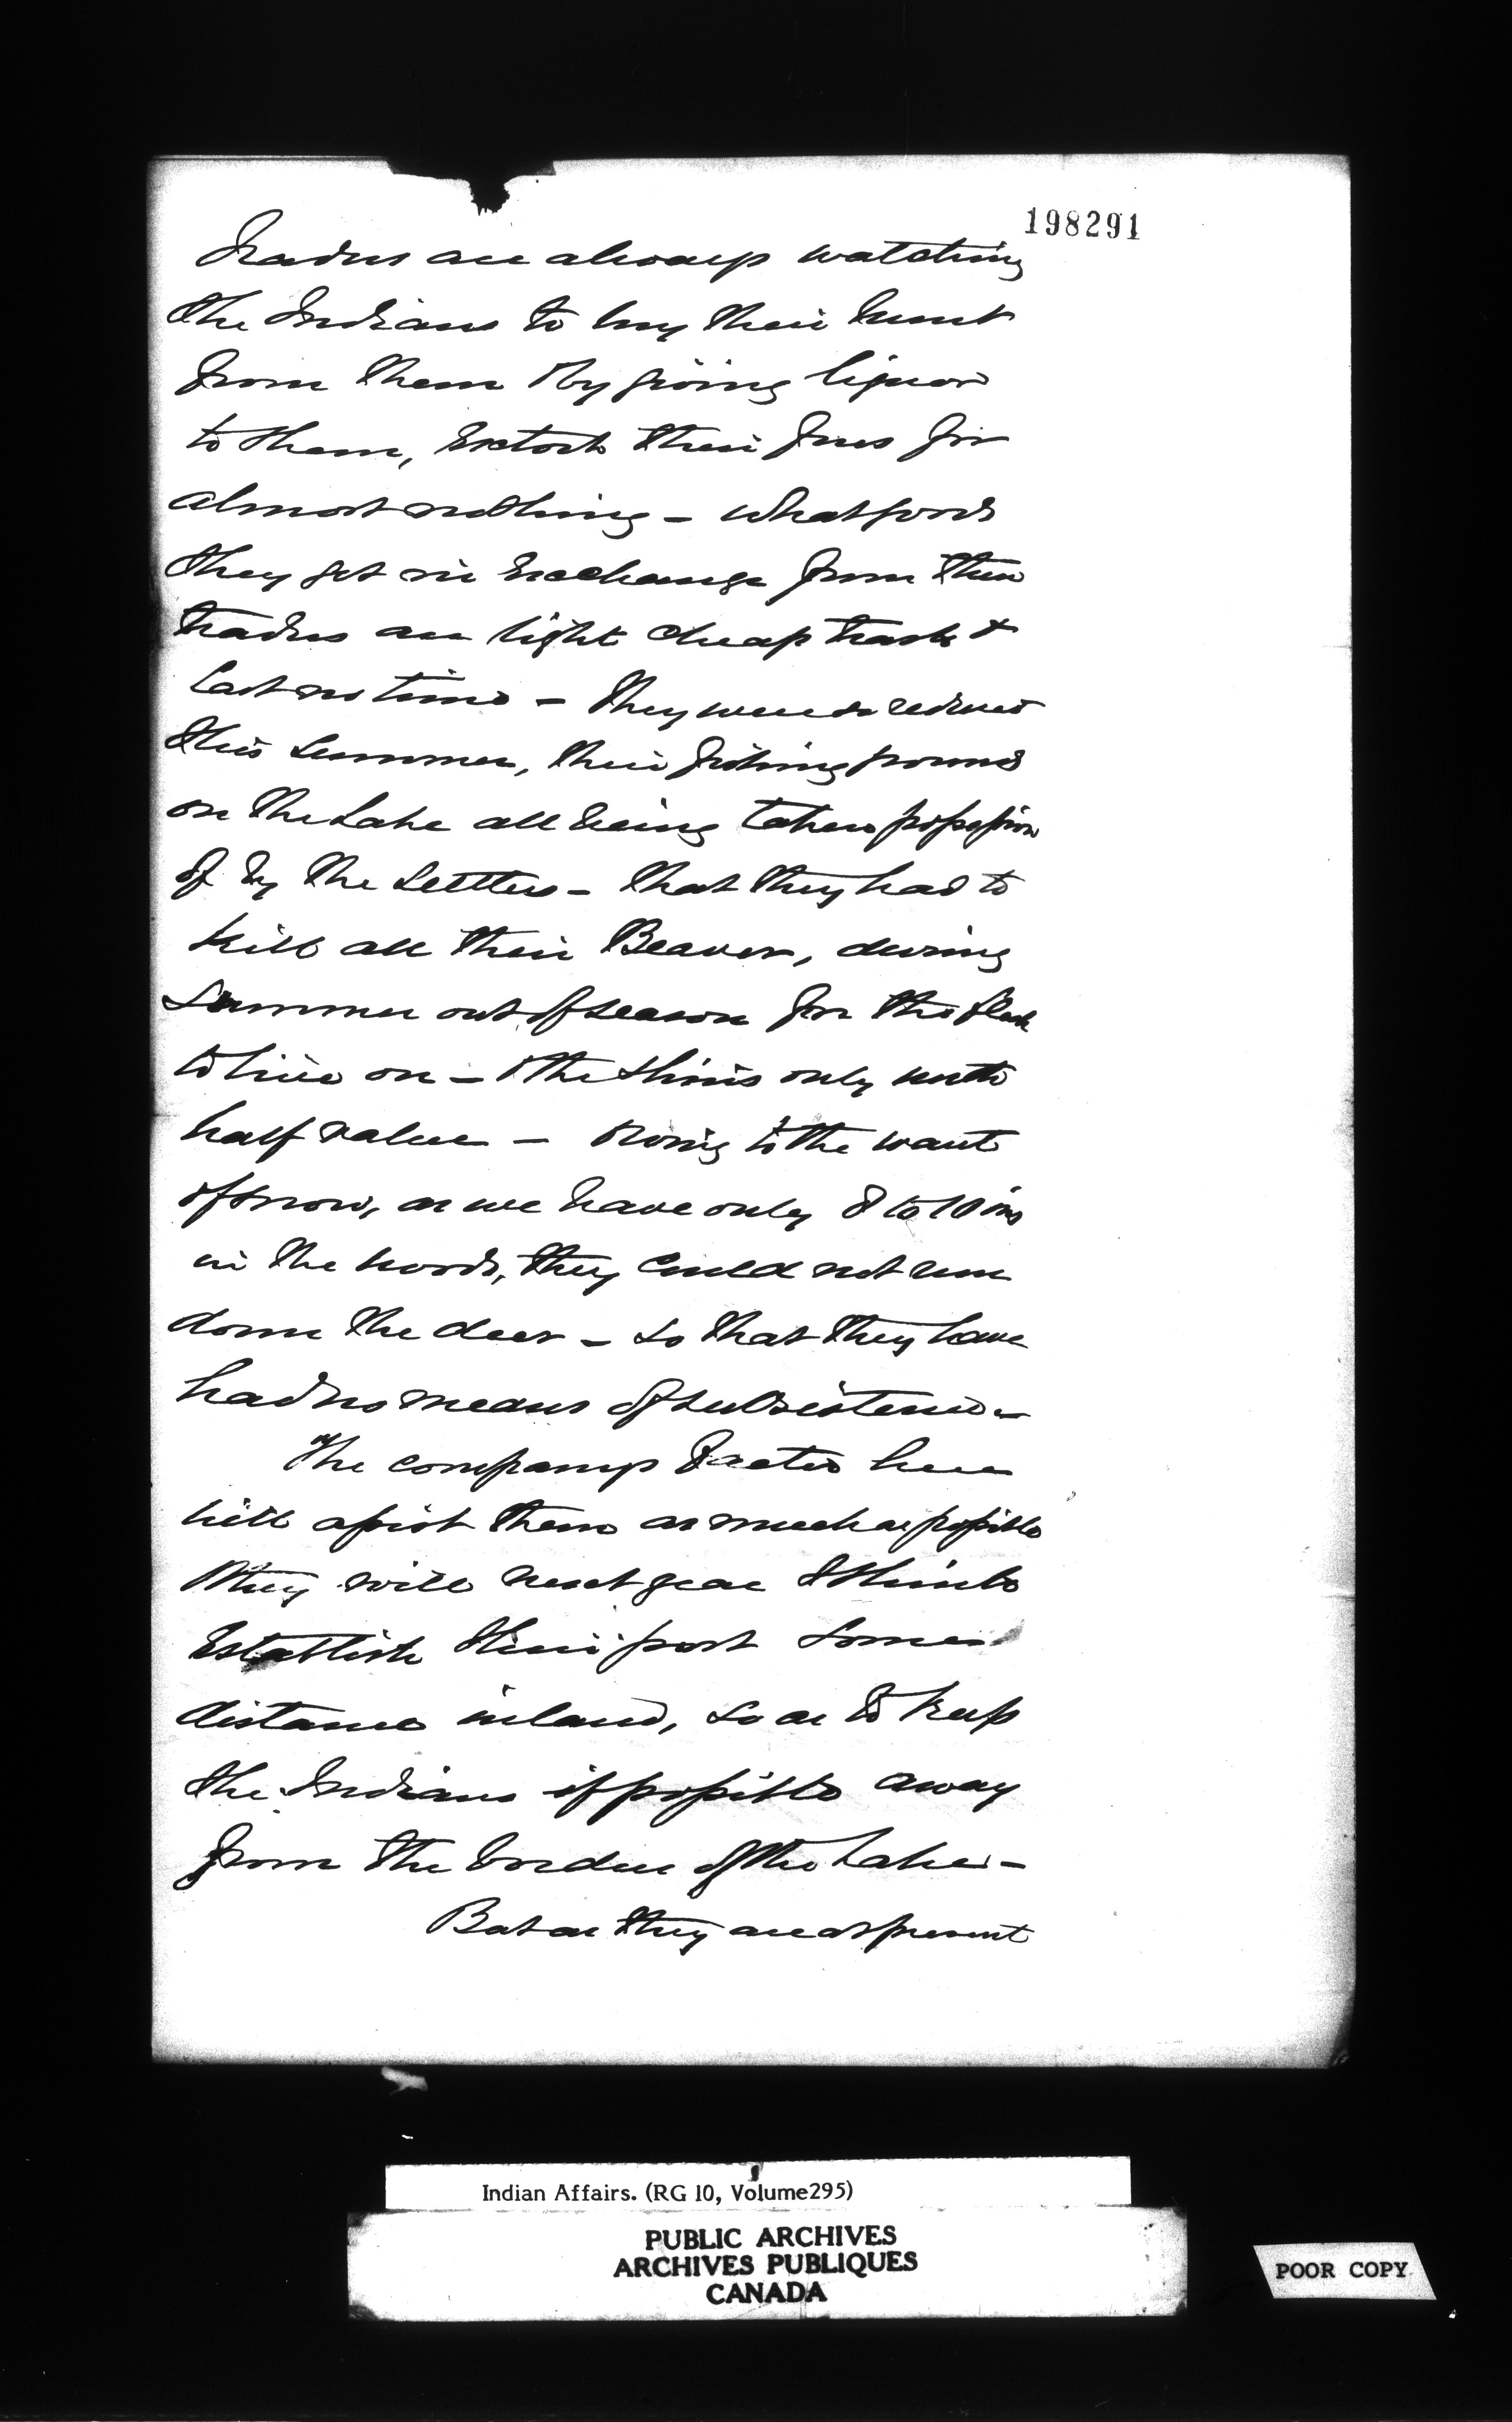 198291
Traders are always watching
the Indians to buy their hunt
from them & by giving liquor
to them, Extort their furs for
almost nothing – What goods
they get in Exchange from these
traders are light cheap trash &
last no time – They were so reduced
this Summer, their fishing grounds
on the Lake all being taken possession
of by the Settlers – that they had to
kill all their Beaver, during
Summer out of season for the flesh
to live on – & the skins only worth
half value – Owing to the want
of snow, as we have only 8 to 10 ins
in the woods, they could not run
down the deer – So that they have
had no means of subsistence –
The company's Factor here
will assist them as much as possible
& they will next year I think
Establish their post some
distance inland, so as to keep
the Indians if possible away
from the border of the Lake –
But as they are at present
Indian Affairs. (RG 10, Volume295)
PUBLIC ARCHIVES
ARCHIVES PUBLIQUES
CANADA
POOR COPY